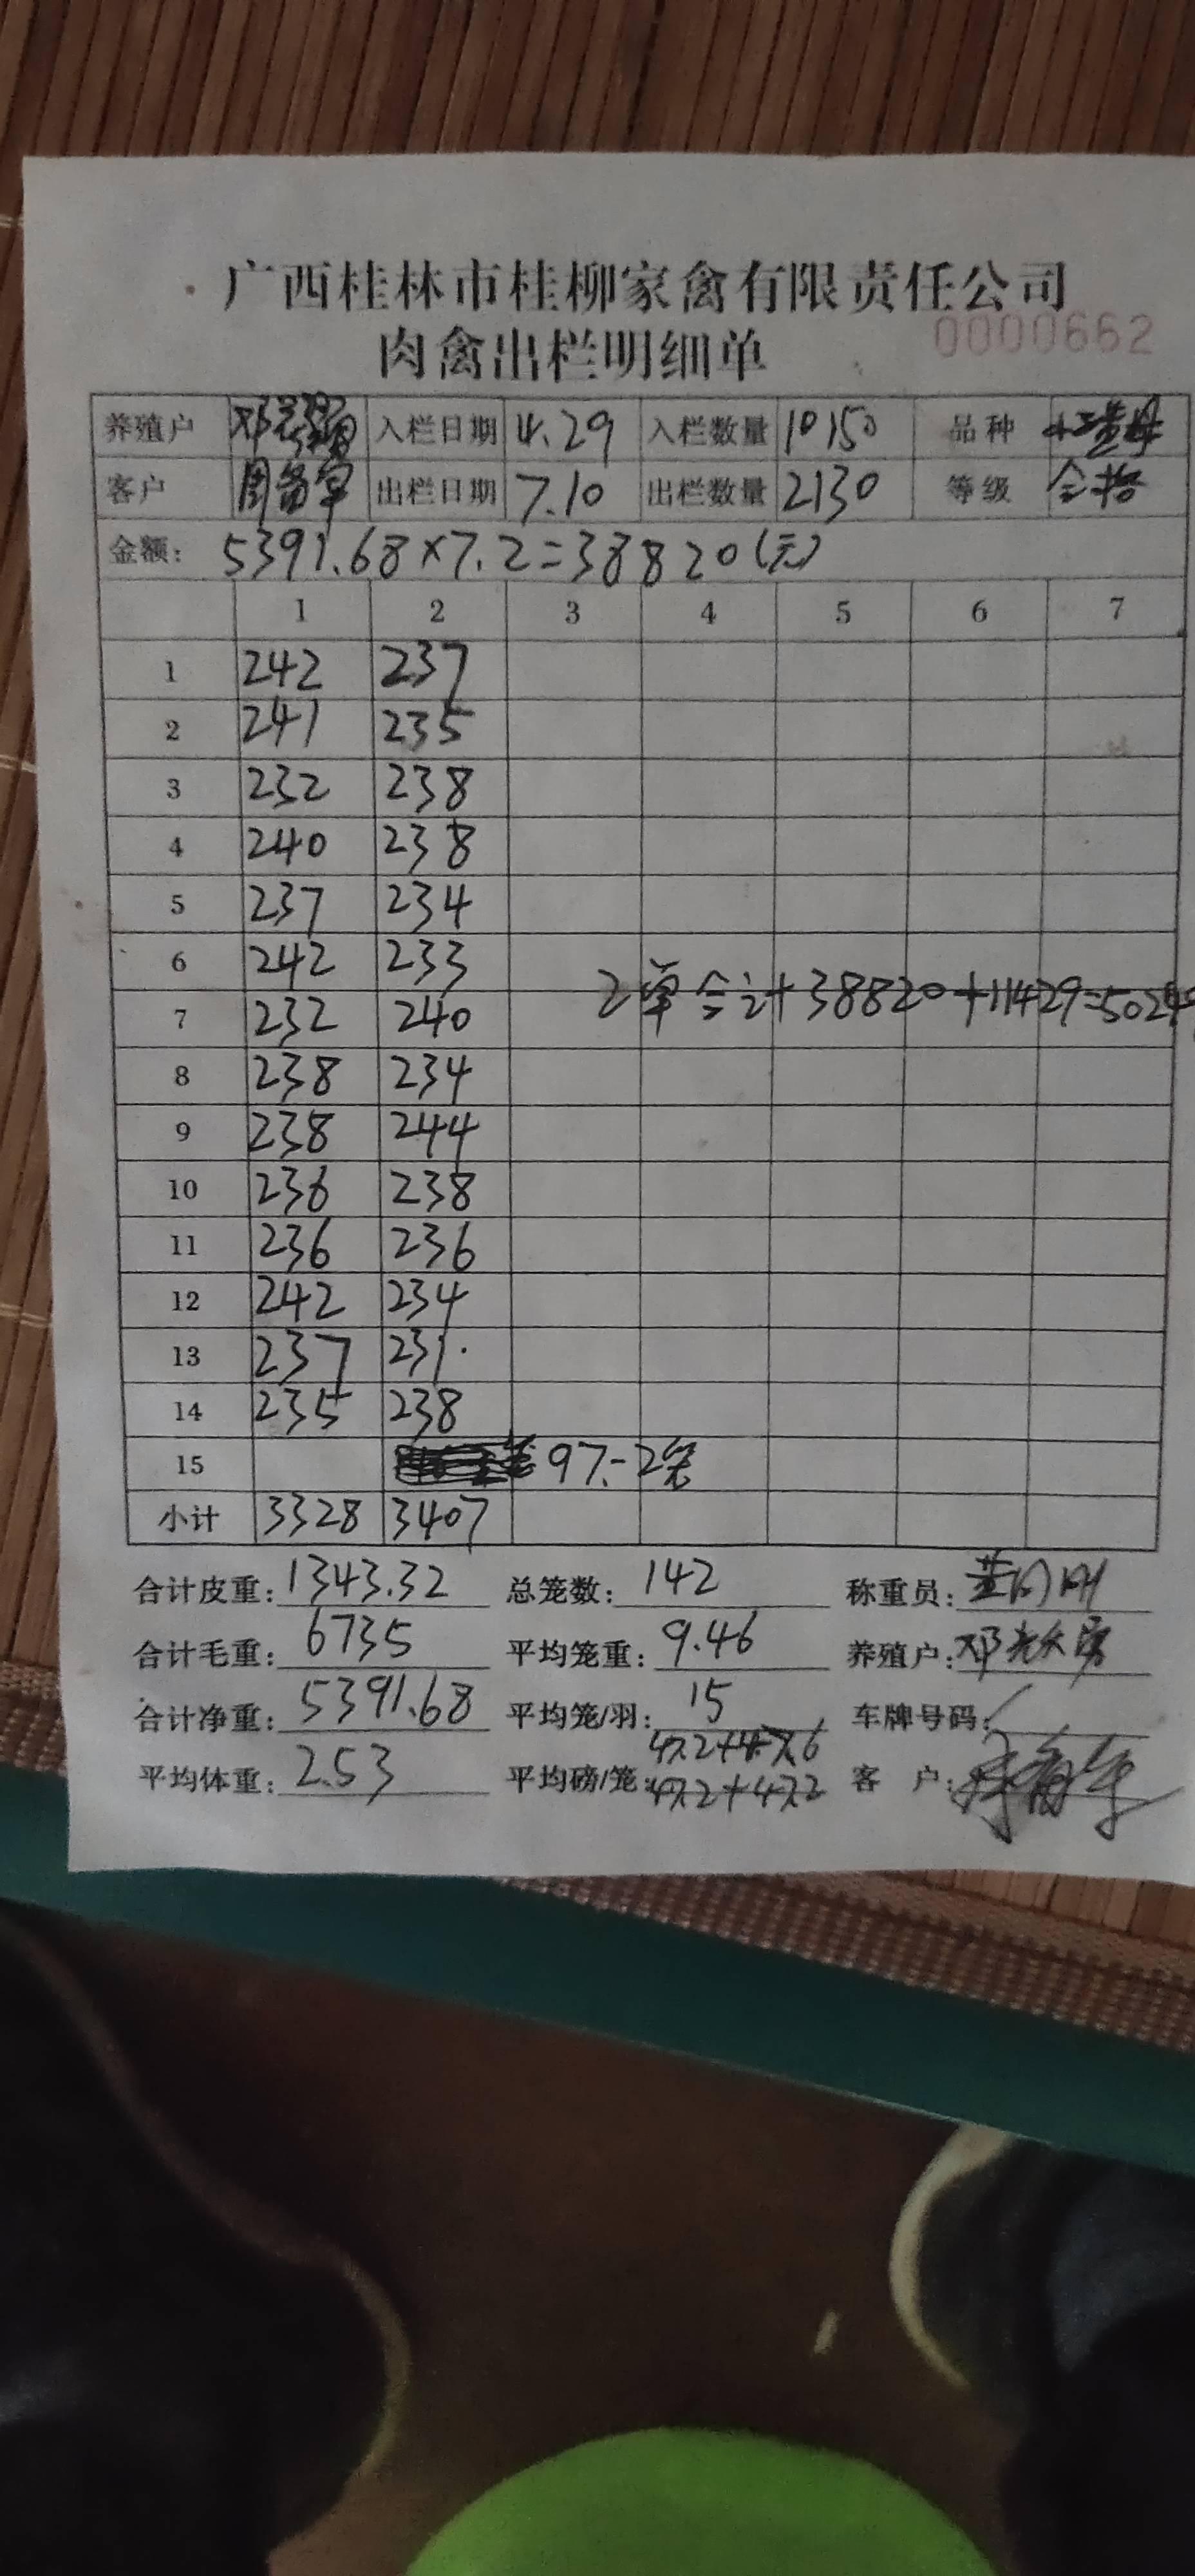 广西桂林市桂柳家禽有限责任公司
肉禽出栏明细单 0000662
养殖户 邓 入栏日期 4.29 入栏数量 10150 品种
客户 出栏日期 7.10 出栏数量 2130 等级 合格
金额: 5391.68×7.2=38820(元)
1 2 3 4 5 6 7
1 242 237
2 241 235
3 232 238
4 240 238
5 237 234
6 242 233
2单合计38820+11429=5024
7 232 240
8 238 234
9 238 244
10 236 238
11 236 236
12 242 234
13 237 231.
14 235 238
15 97.-2笼
小计 3328 3407
合计皮重: 1343.32 总笼数: 142 称重员:
合计毛重: 6735 平均笼重: 9.46 养殖户: 邓
合计净重: 5391.68 平均笼/羽: 15 车牌号码: /
平均体重: 2.53 平均磅/笼: 47.2+47.6 客 户:
47.2+47.2